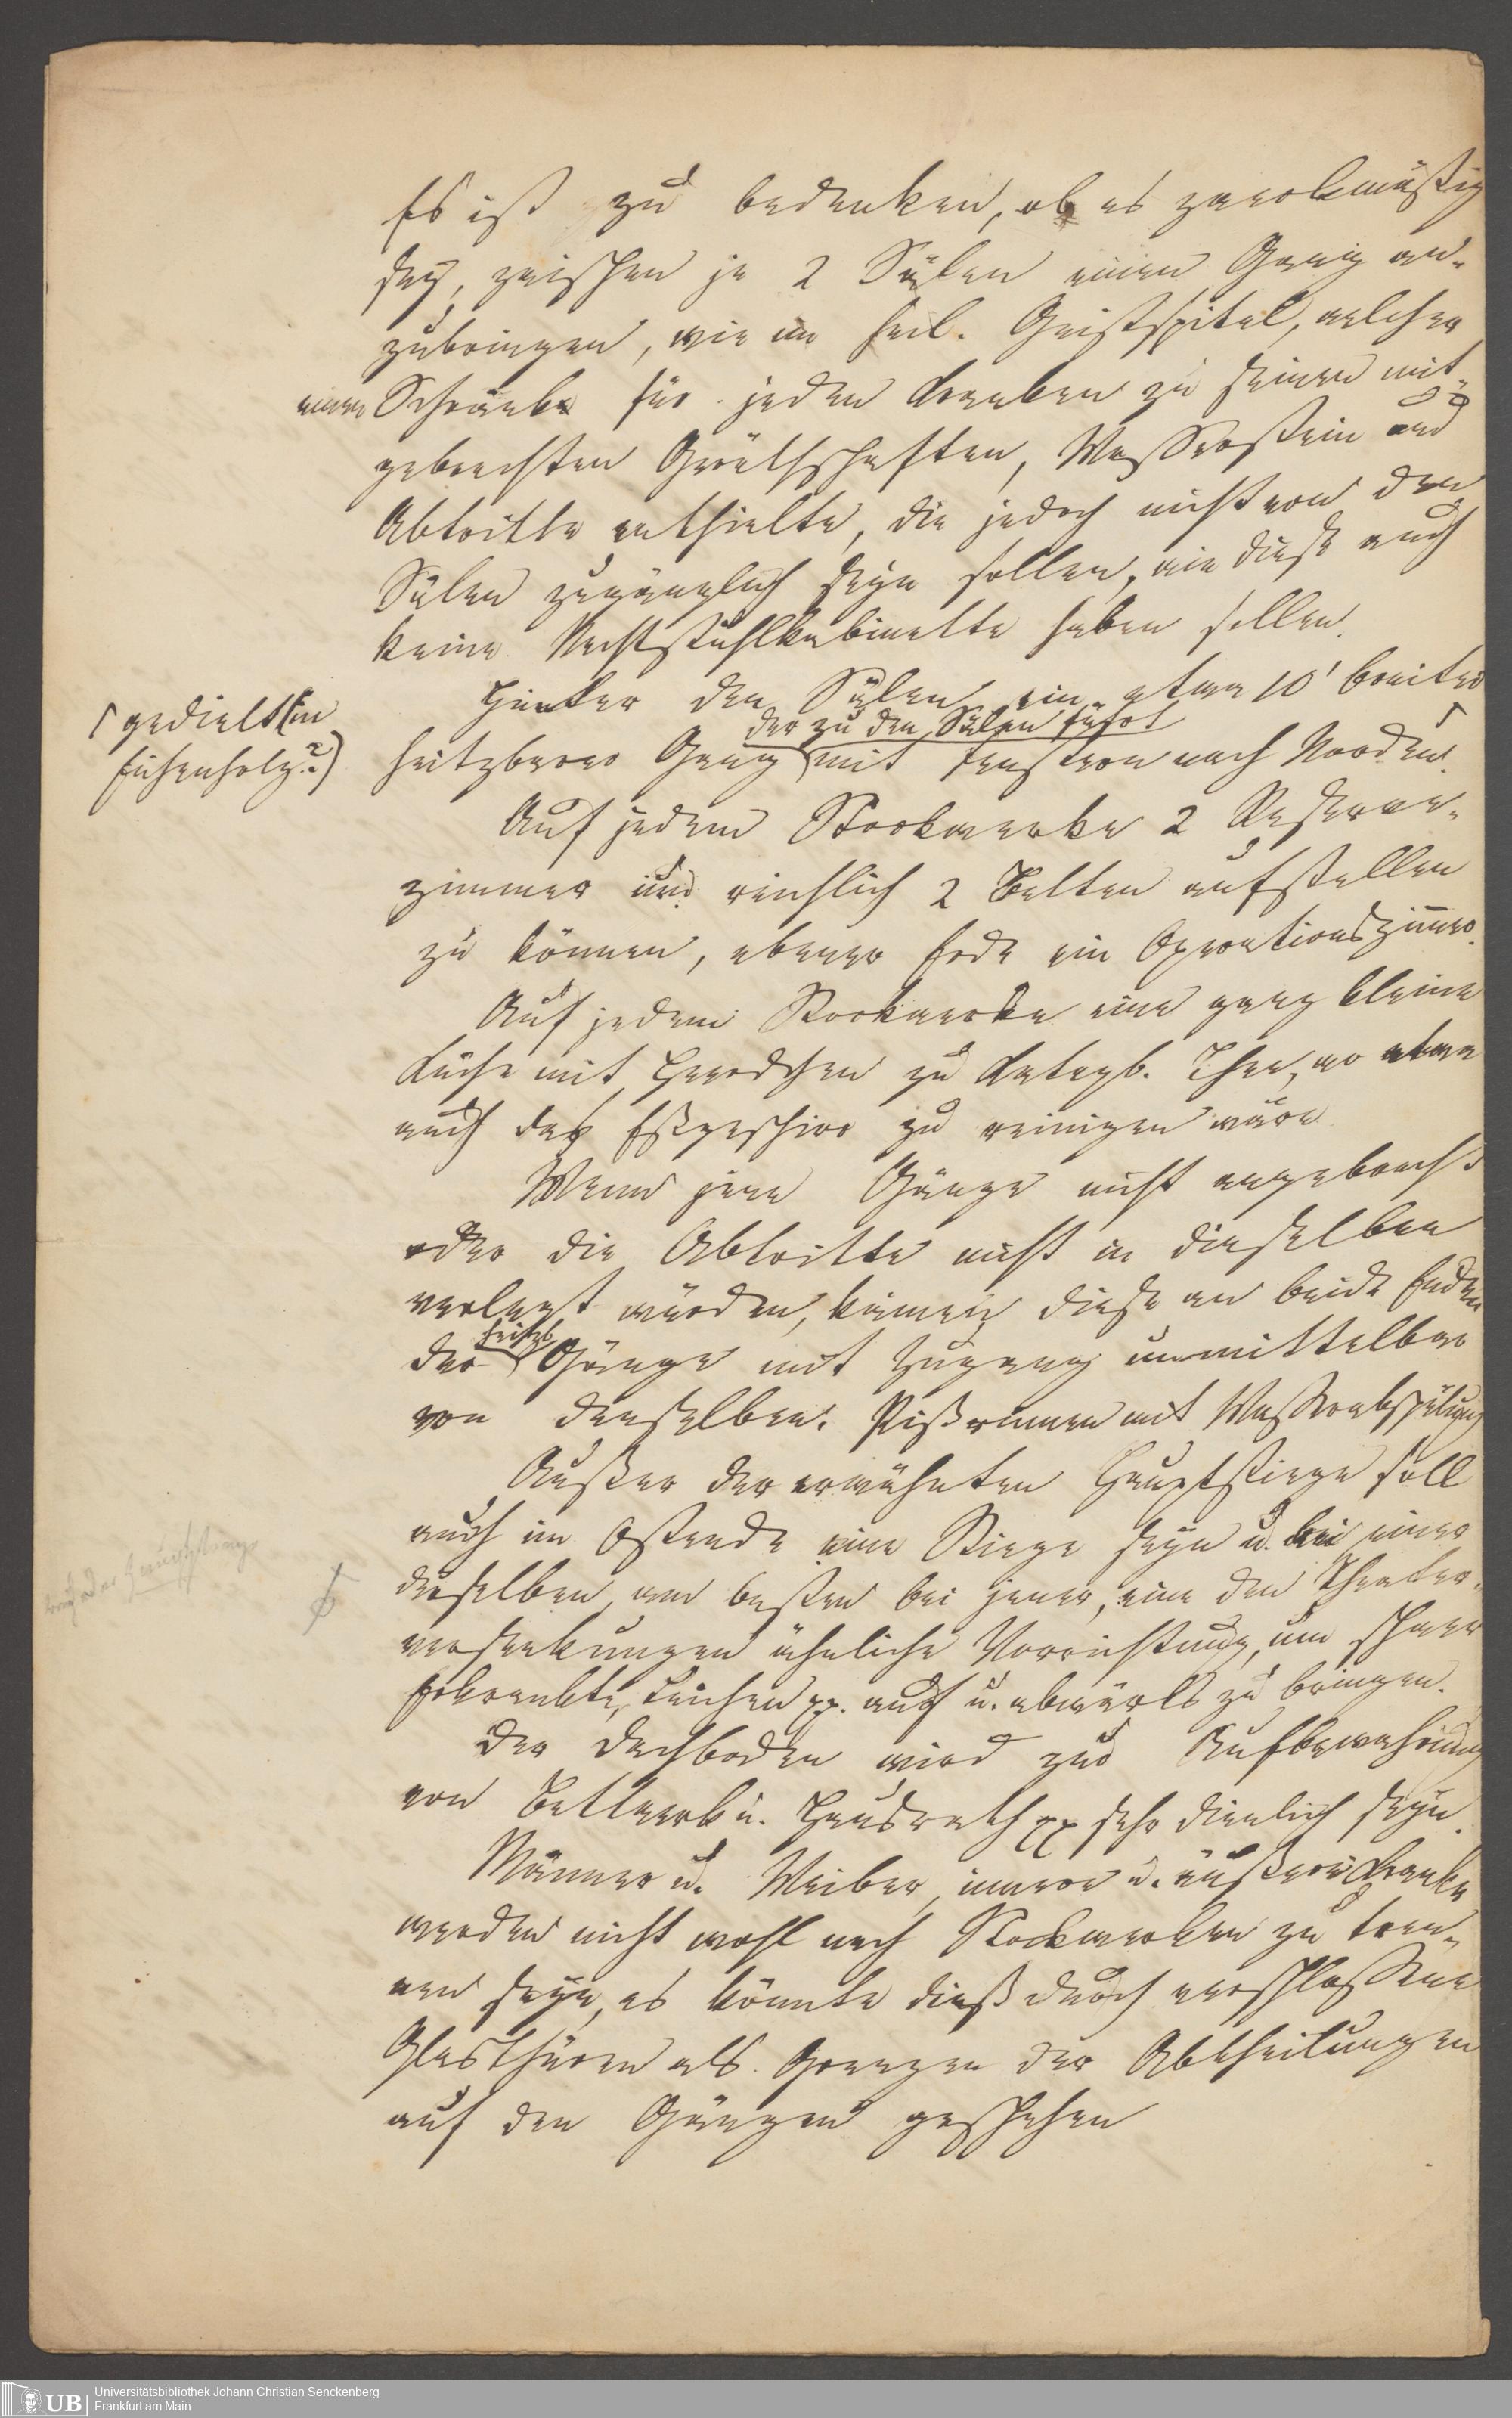 Es ist zu bedenken, ob es zweckmäßig
sey, zwischen je 2 Sälen einen Gang an-
zubringen, wie im heil. Geistspital, welcher
einen Schrank für jeden Kranken zu seinen mit
gebrachten Geräthschaften, Wasserstein und
Abtritte enthielte, die jedoch nicht von den
Sälen zugänglich seyn sollen, wie diese auch
keine Nachtstuhlkabinette haben sollen.
Hinter den Sälen ein etwa 10' breiter
der zu den Sälen führt
heitzbarer Gang mit Fenstern nach Norden.
gedielt (in
Eichenholz?)
Auf jedem Stockwerke 2 Reserve-
zimmer und reichlich 2 Betten aufstellen
zu können, ebener Erde ein Operationszimmer.
Auf jedem Stockwerke eine ganz kleine
Küche mit Heerdchen zu Kataplb. Thee, wo etwa
auch das Eßgeschirr zu reinigen wäre.
Wenn jene Gänge nicht angebracht
oder die Abtritte nicht in dieselben
verlegt würden, kämen diese an beide Enden
der Gänge mit Zugang unmittelbar
von denselben. Pißrinnen mit Wasserabspülung
Außer der erwähnten Hauptstiege soll
auch im Ostende eine Stiege seyn u. bei einer
derselben, am besten bei jener, eine den Theater-
versenkungen ähnliche Vorrichtung, um schwer
Erkrankte, Leichen pp. auf u. abwärts zu bringen.
Der Dachboden wird zur Aufbewahrung
von Bettwerk u. Hausrath pp sehr dienlich seyn.
Männer u. Weiber, innere u. äußere Kranke
werden nicht wohl nach Stockwerken zu tren-
nen seyn, es könnte dieß durch verschlossene
Glasthüren als Grenzen der Abtheilungen
auf den Gängen geschehen
UB
Universitätsbibliothek Johann Christian Senckenberg
Frankfurt am Main